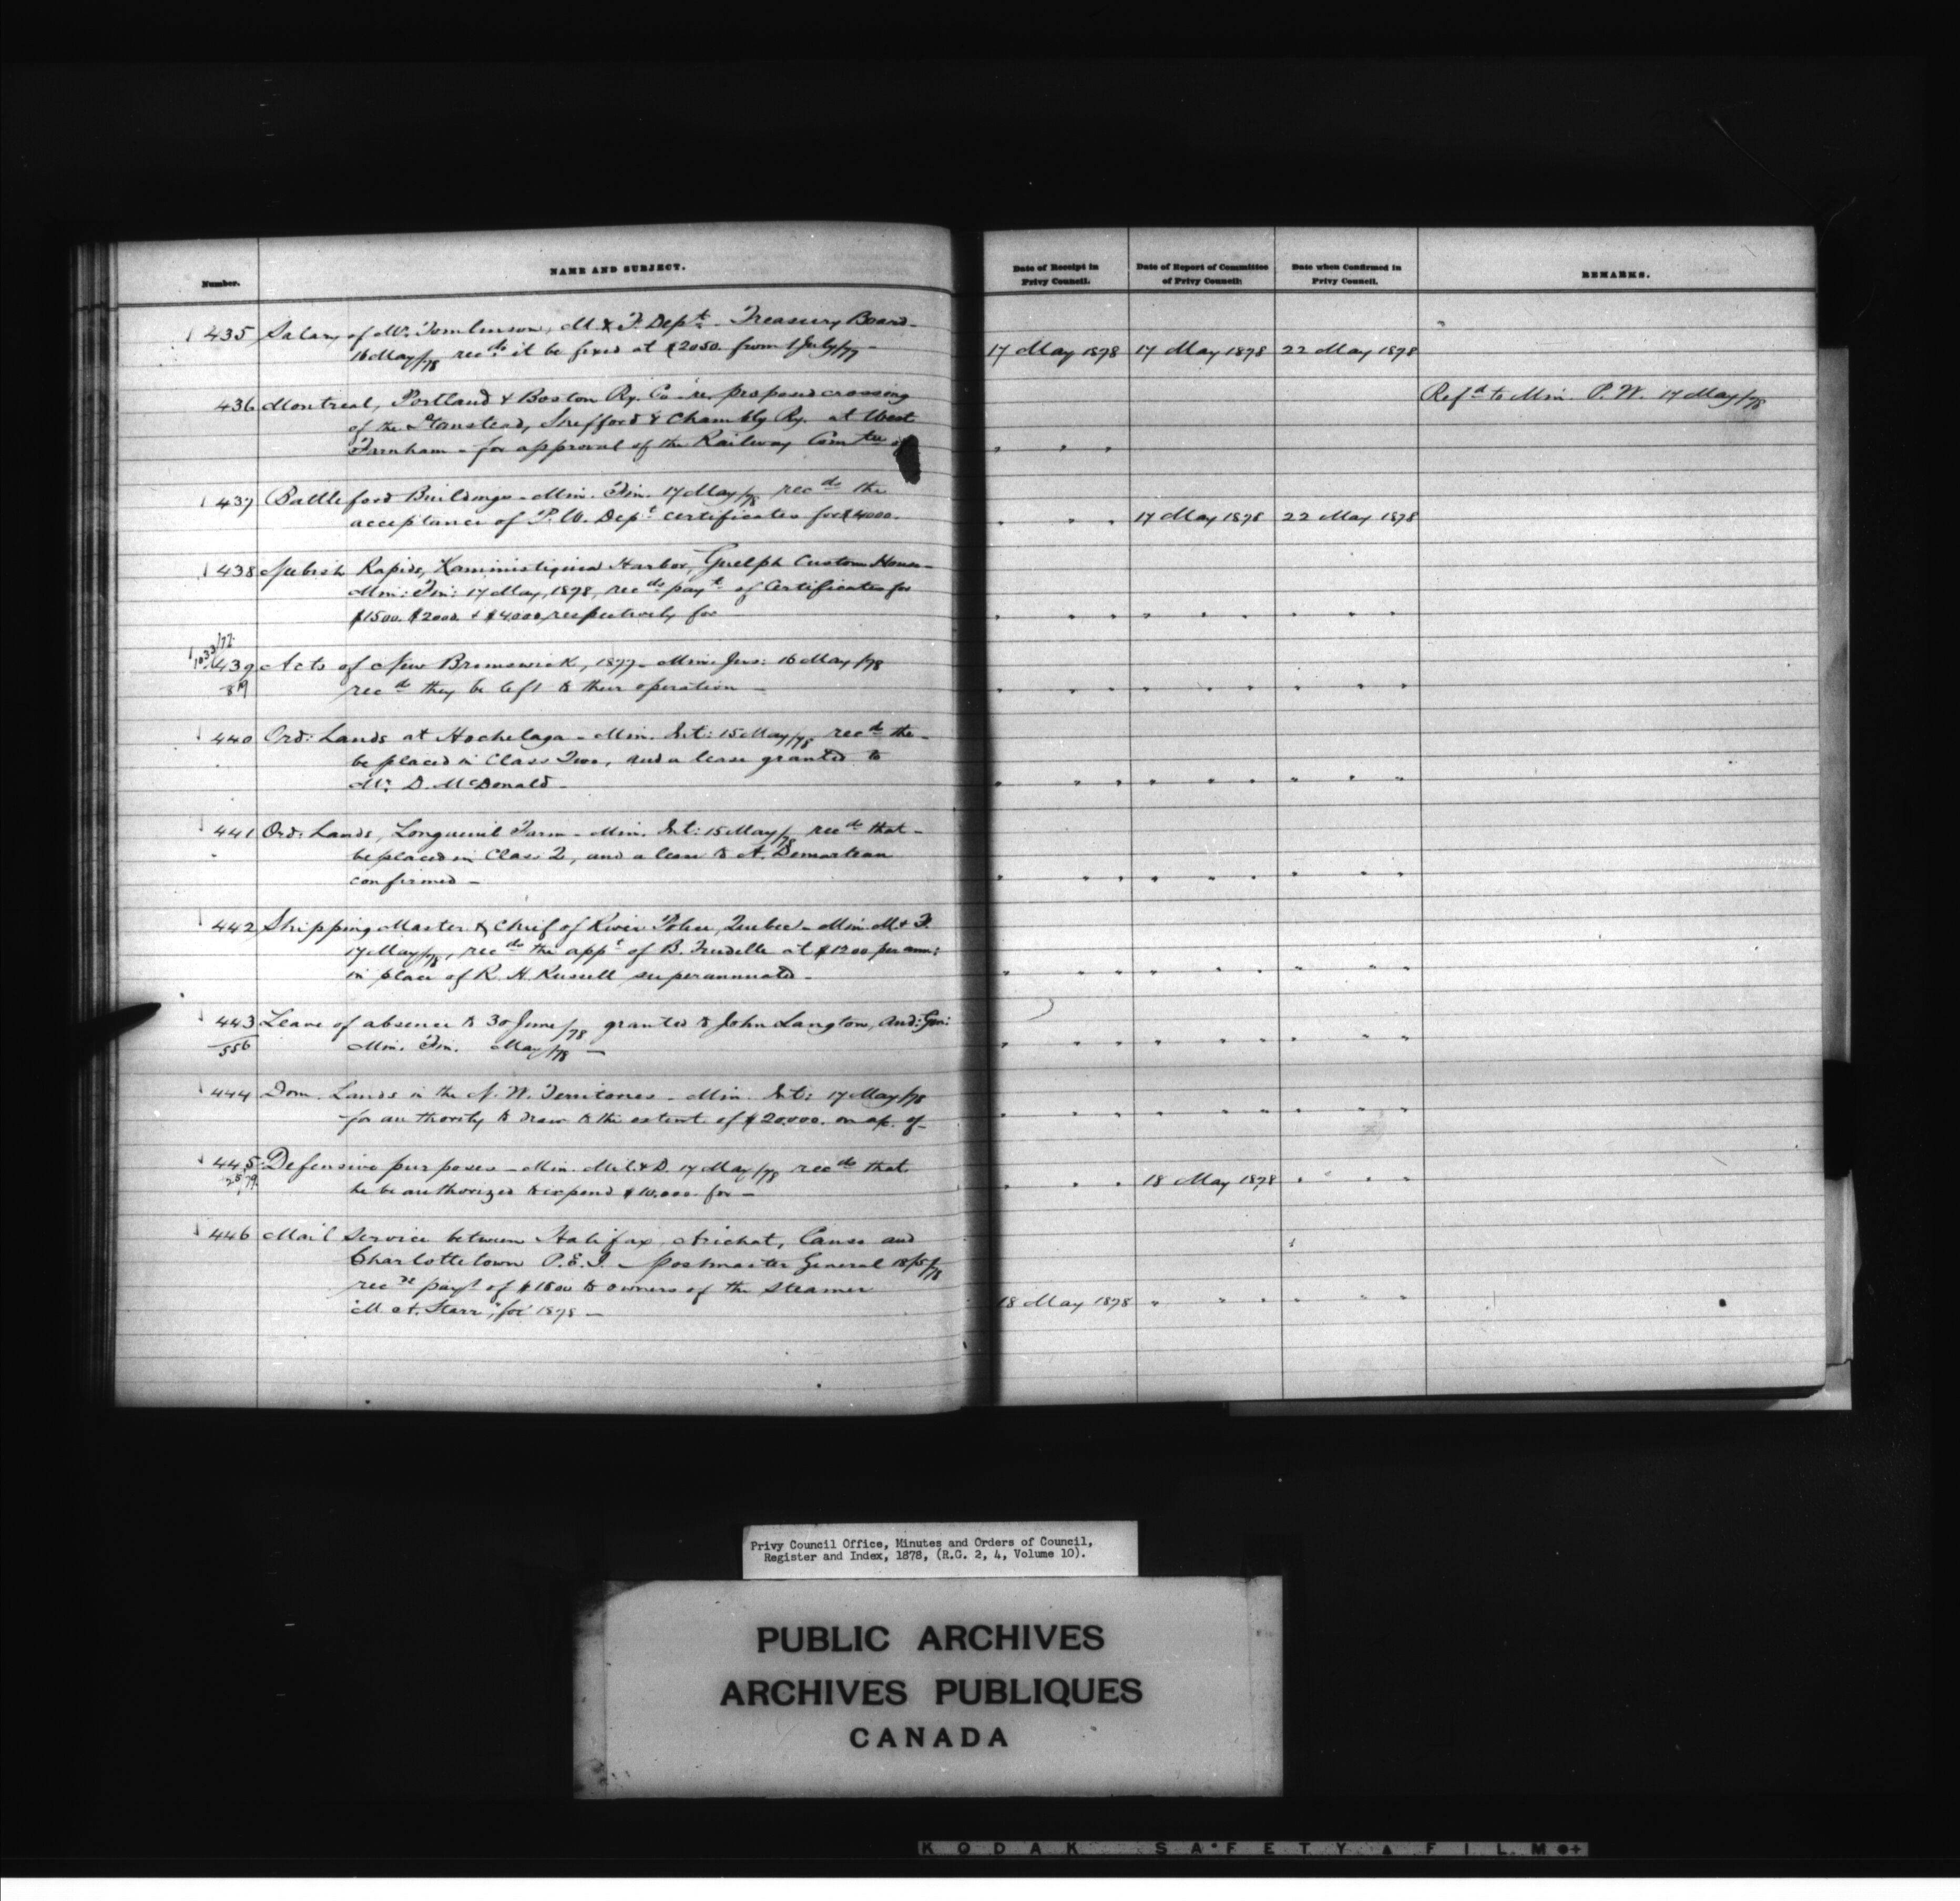 Number.
NAME AND SUBJECT.
Date of Receipt in Privy Council.
Date of Report of Committee of Privy Council.
Date when Confirmed in Privy Council.
REMARKS.
435 Salary of Mr. Tomlinson, M & F. Dept. Treasury Board
16 May/78 recds. it be fixed at $2050. from 1 July/77
17 May 1878 17 May 1878 22 May 1878
436 Montreal, Portland & Boston Ry. Co. re. proposed crossing
Refd. to Min. P. W. 17 May/78
of the Stanstead, Shefford & Chambly Ry. at West
Farnham - for approval of the Railway Comtee of
" " "
437 Battleford Buildings - Min. Fin. 17 May/78 recds the
acceptance of P. W. Dept certificates for $4000.
" " " 17 May 1878 22 May 1878
438 Rapids, Kaministiquia Harbor, Guelph Custom House
Min: Fin: 17 May, 1878, recds payt. of Certificates for
$1500. $2000. & $4000 respectively for
" " " " " " " " "
1033/77
439 Acts of New Brunswick, 1877 - Min: Jus: 16 May/78
819 recds they be left to their operation -
" " " " " " " " "
440 Ord: Lands at Hochelaga - Min. Int: 15 May/78 recds the
be placed in Class Two, and a lease granted to
Mr. D. McDonald -
" " " " " " " " "
441 Ord: Lands, Longueuil Farm - Min. Int: 15 May/78 recds that -
be placed in Class 2, and a lease to A.
confirmed -
" " " " " " " " "
442 Shipping Master & Chief of River Police, Quebec - Min. M & F.
17 May/78, recds the appt of B. Trudelle at $1200 per ann:
in place of R. H. Russell superannuated -
" " " " " " " " "
443 Leave of absence to 30 June/78 granted to John Langton, Aud: Gen:
556 Min. Fin. May/78 -
" " " " " " " " "
444 Dom. Lands in the N. W. Territories - Min. Int: 17 May/78
for authority to draw to the extent of $20,000. on ap. of -
" " " " " " " " "
445 Defensive purposes - Min. Mil. & D. 17 May/78 recds that
he be authorized to expend $10,000. for -
" " " 18 May 1878 " " "
446 Mail Service between Halifax, Arichat, Canso and
Charlottetown P.E.I. - Postmaster General 18/5/78
recds payt of $1500 to owners of the Steamer
"M. A. Starr", for 1878 -
18 May 1878 " " " " " "
Privy Council Office, Minutes and Orders of Council,
Register and Index, 1878, (R.G. 2, 4, Volume 10).
PUBLIC ARCHIVES
ARCHIVES PUBLIQUES
CANADA
KODAK SAFETY FILM